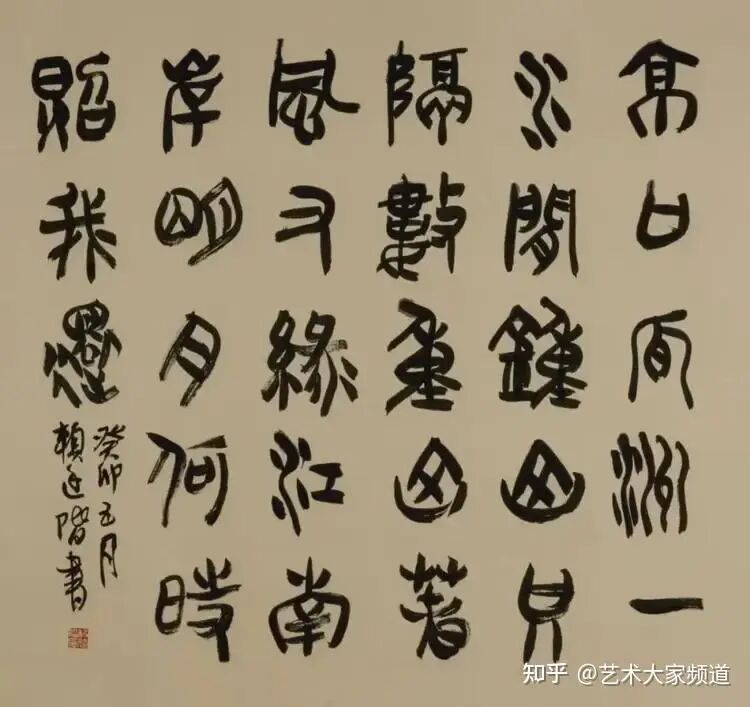 京口瓜洲一
水間鐘山只
隔數重山春
風又綠江南
岸明月何時
照我還
癸卯五月
賴廷階書
知乎 @艺术大家频道